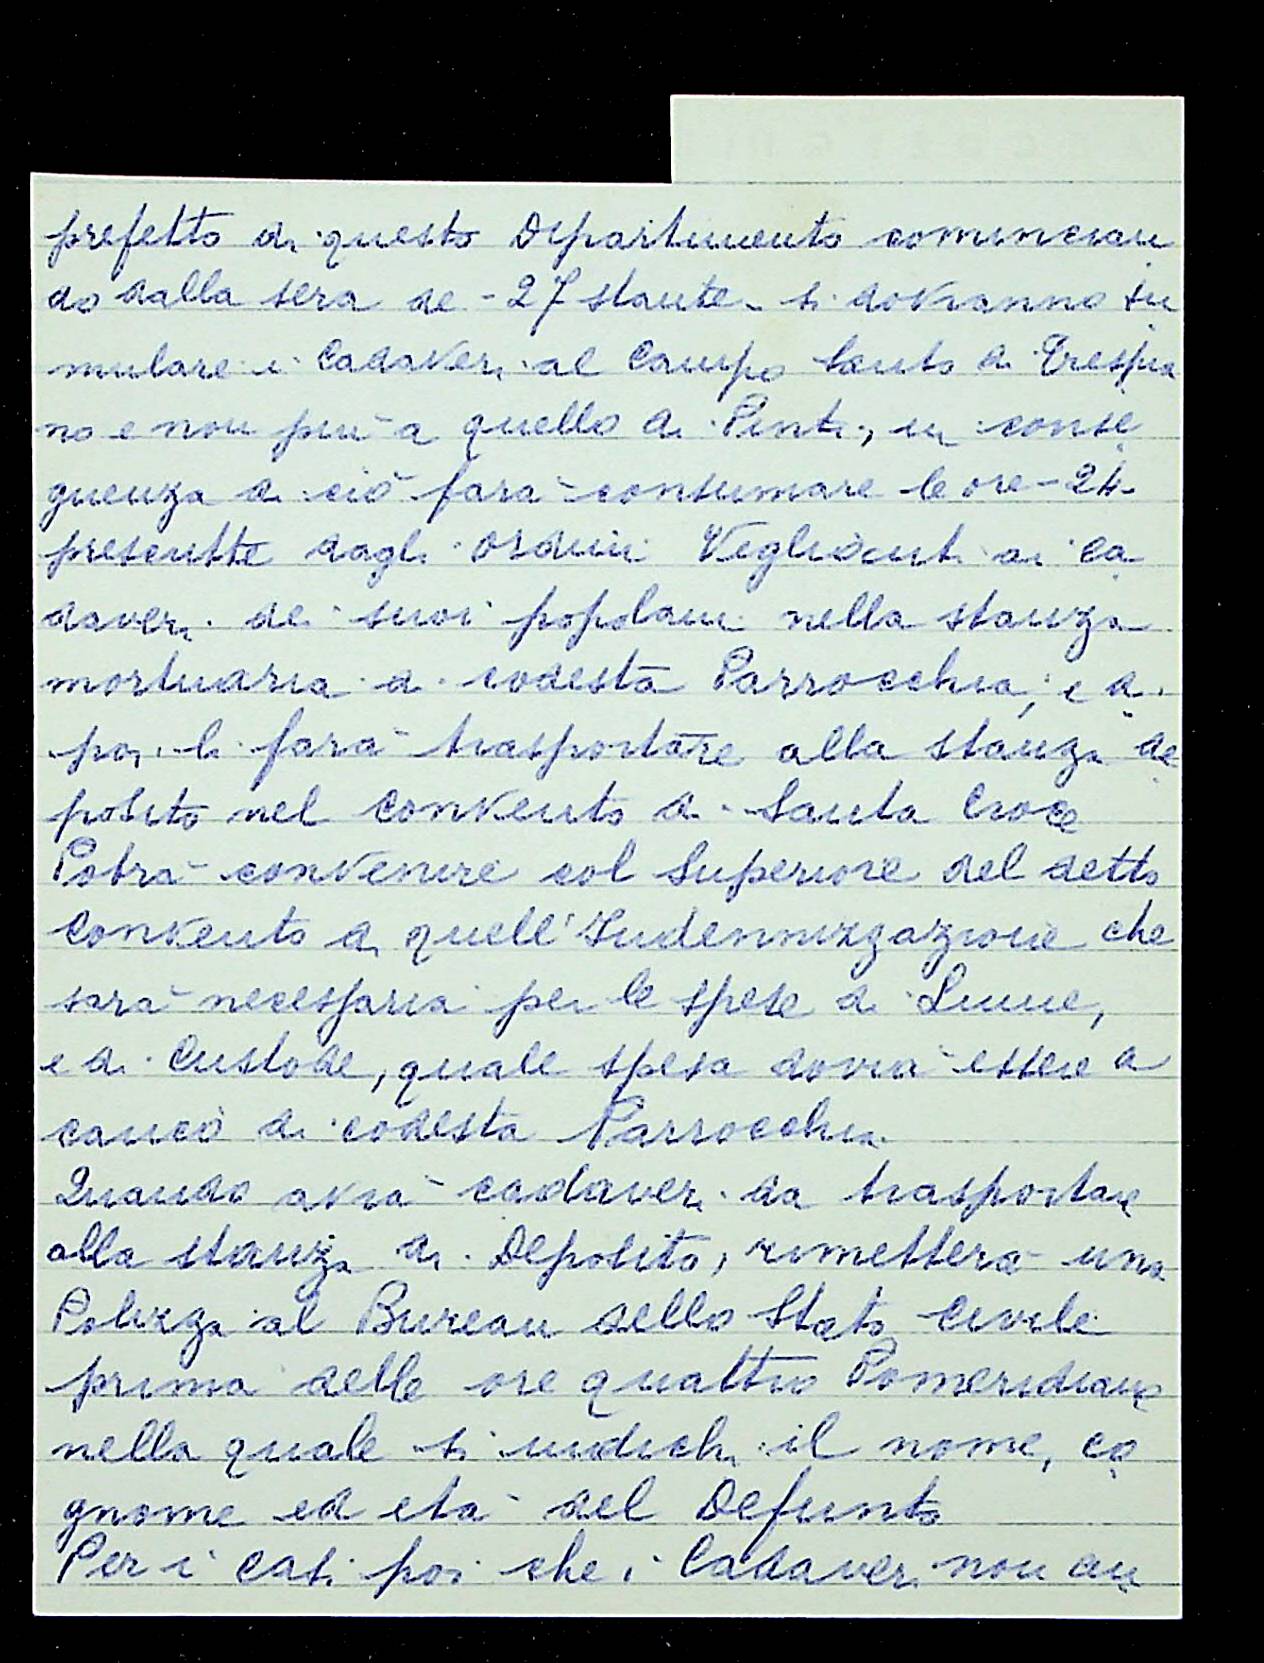 prefetto di questo Dipartimento comincian
do dalla sera de - 27 stante - si dovranno tu
mulare i Cadaveri al Campo Santo di Trespia
no e non più a quello di Pinti, in conse
guenza di ciò farà consumare le ore - 24 -
prescritte dagli ordini Veglianti ai ca
daveri dei suoi popolani nella stanza
mortuaria di codesta Parrocchia, e di
poi li farà trasportare alla stanza de
posito nel convento di Santa Croce
Potrà convenire col Superiore del detto
Convento di quell'Indennizzazione che
sarà necessaria per le spese di Lume,
e di Custode, quale spesa dovrà essere a
carico di codesta Parrocchia.
Quando avrà cadaveri da trasportare
alla stanza di Deposito, rimetterà una
Polizza al Bureau dello Stato Civile
prima delle ore quattro Pomeridiane
nella quale si indichi il nome, co
gnome ed età del Defunto
Per i casi poi che i Cadaveri non